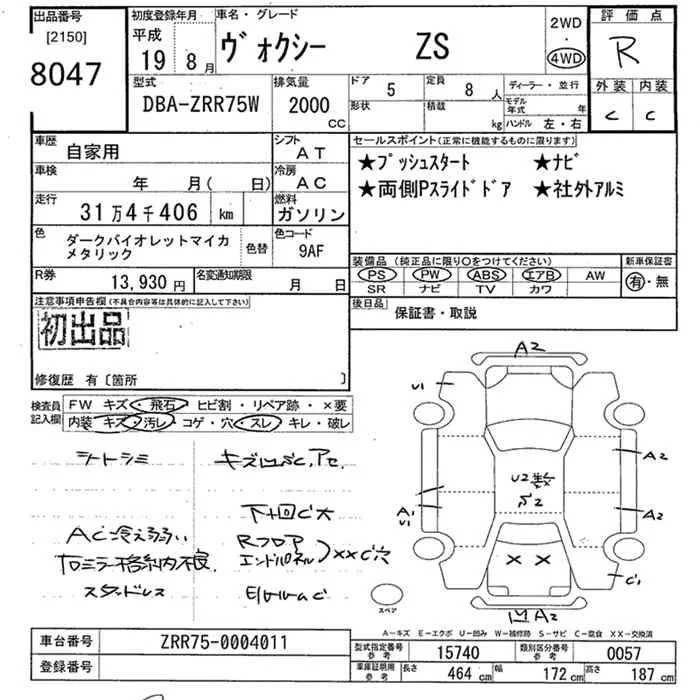 出品番号
[2150]
8047
初度登録年月
平成
19 8月
車名・グレード
ヴォクシー ZS
2WD
・
4WD
評価点
R
外装 内装
C C
型式
DBA-ZRR75W
排気量
2000
CC
ドア 5
定員 8 人
形状
積載 kg
ディーラー・並行
モデル年式 年
ハンドル 左・右
車歴 自家用
シフト AT
車検 年 月( 日)
冷房 AC
走行 31万4千406 km
燃料 ガソリン
色 ダークバイオレットマイカ
メタリック
色替
色コード 9AF
R券 13,930円
名変通知期限 月 日
セールスポイント(正常に機能するものに限ります)
★プッシュスタート ★ナビ
★両側Pスライドドア ★社外アルミ
装備品 (純正品に限り○をつけてください)
PS PW ABS エアB AW
SR ナビ TV カワ
新車保証書
有・無
後日品 保証書・取説
注意事項申告欄(不具合内容等は具体的に記入して下さい)
初出品
修復歴 有〔箇所 〕
検査員
記入欄
FW キズ・飛石・ヒビ割・リペア跡・×要
内装 キズ・汚レ・コゲ・穴・スレ・キレ・破レ
シートシミ
AC冷え弱い
スタッドレス
下廻C大
Rフロア
エンドパネル
××C穴
A2
U1
A2
A1
U1
A2
U2数
× ×
C1
A2
スペア
A-キズ E-エクボ U-凹み W-補修跡 S-サビ C-腐食 XX-交換済
車台番号 ZRR75-0004011
登録番号
型式指定番号
参考
15740
類別区分番号
参考
0057
車庫証明用
参考
長さ 464 cm 幅 172 cm 高さ 187 cm